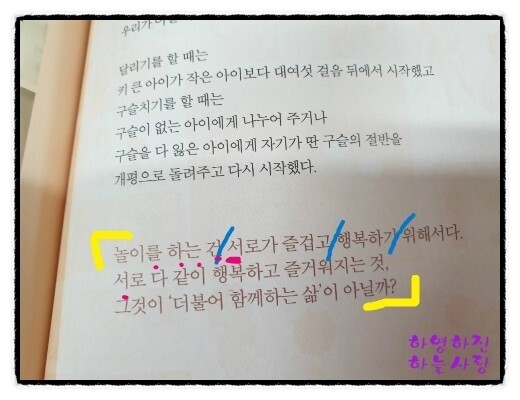 우리가 어
달리기를 할 때는
키 큰 아이가 작은 아이보다 대여섯 걸음 뒤에서 시작했고
구슬치기를 할 때는
구슬이 없는 아이에게 나누어 주거나
구슬을 다 잃은 아이에게 자기가 딴 구슬의 절반을
개평으로 돌려주고 다시 시작했다.
놀이를 하는 건 서로가 즐겁고 행복하기 위해서다.
서로 다 같이 행복하고 즐거워지는 것,
그것이 '더불어 함께하는 삶'이 아닐까?
하영하진
하늘사랑